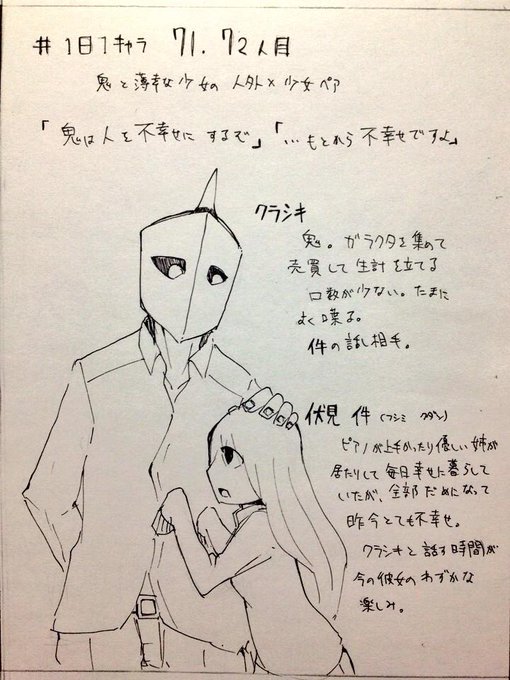 #1日1キャラ 71.72人目
鬼と薄幸少女の人外×少女ペア
「鬼は人を不幸せにするぞ」「…もとから不幸せですよ」
クラシキ
鬼。ガラクタを集めて
売買して生計を立てる
口数が少ない。たまに
よく喋る。
件の話し相手。
伏見 件(フシミ クダン)
ピアノが上手かったり優しい姉が
居たりして毎日幸せに暮らして
いたが、全部だめになって
昨今とても不幸せ。
クラシキと話す時間が
今の彼女のわずかな
楽しみ。